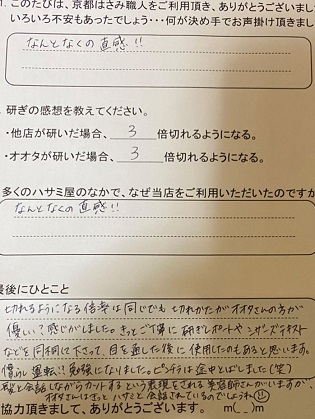 1. このたびは、京都はさみ職人をご利用頂き、ありがとうございまし
いろいろ不安もあったでしょう・・・何が決め手でお声掛け頂きまし
なんとなくの直感!!
研ぎの感想を教えてください。
・他店が研いだ場合、 3 倍切れるようになる。
・オオタが研いだ場合、 3 倍切れるようになる。
多くのハサミ屋のなかで、なぜ当店をご利用いただいたのですか
なんとなくの直感!!
最後にひとこと
切れるようになる倍率は同じでも切れかたがオオタさんの方が
優しいて感じがしました。きっとご丁寧に研ぎレポートやシザーズテキスト
などを同梱して下さって、目を通した後に使用したのもあると思います。
慣らし運転!!勉強になりました。ビシラは企やとばしました(笑)
髪と会話しながらカットするという表現をされる美容師さんがいますが、
オオタさんはきっとハサミと会話されているのでしょうね
協力頂きまして、ありがとうございます。 m(_ _)m